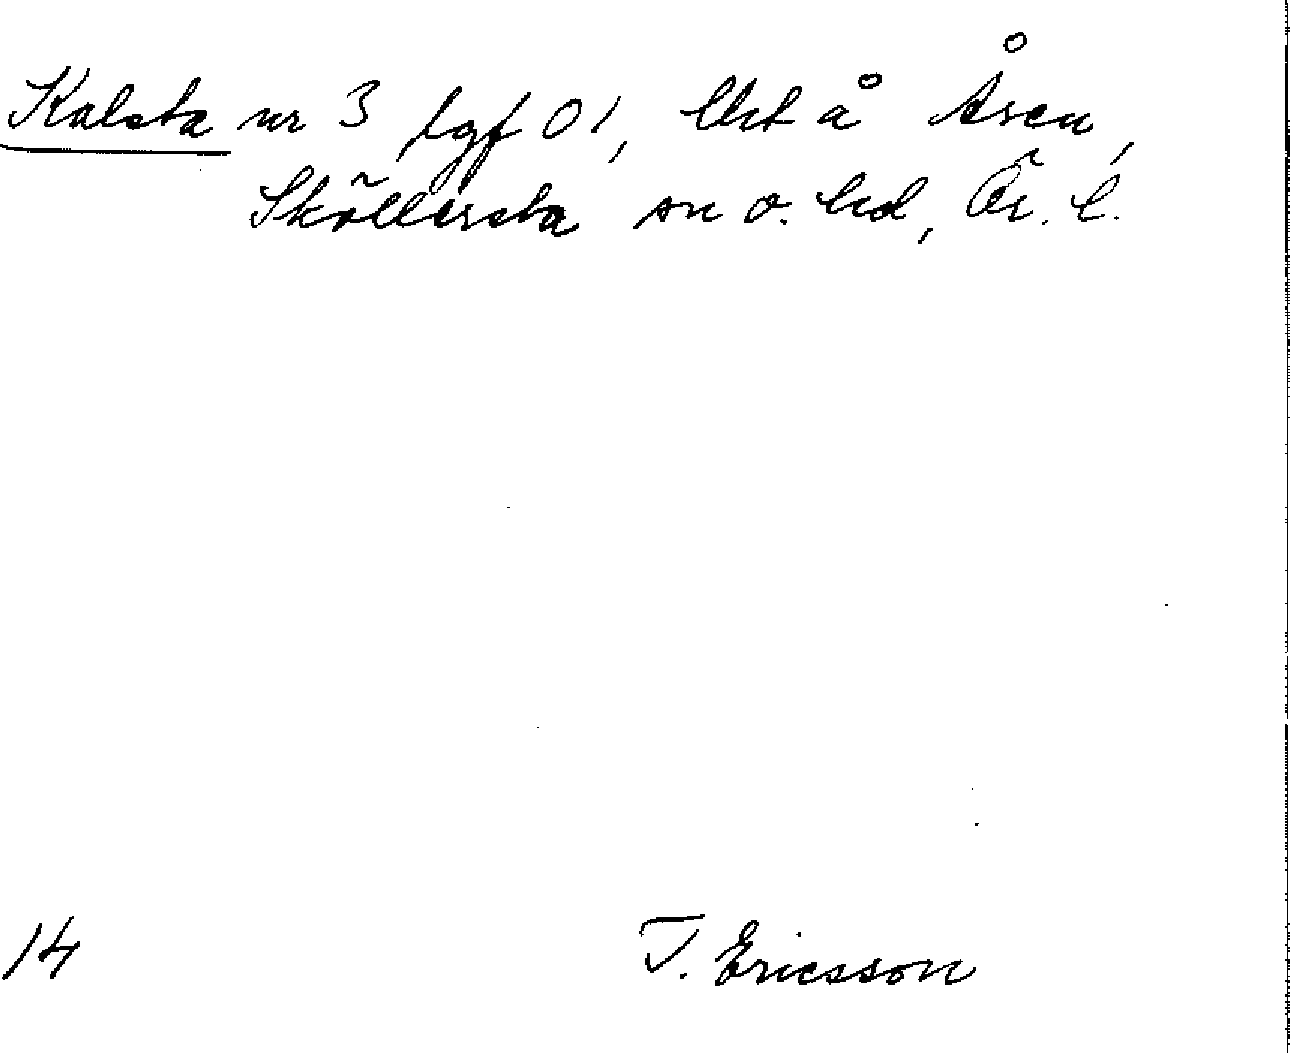 Kalsta nr 3 lgf 01, Utt å Åsen,
Sköllersta sn o. hd, Ör. l.
14
T. Ericsson